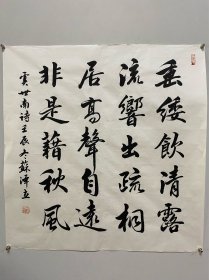 垂緌飲清露
流響出疏桐
居高聲自遠
非是藉秋風
虞世南诗壬辰冬蘇澤立